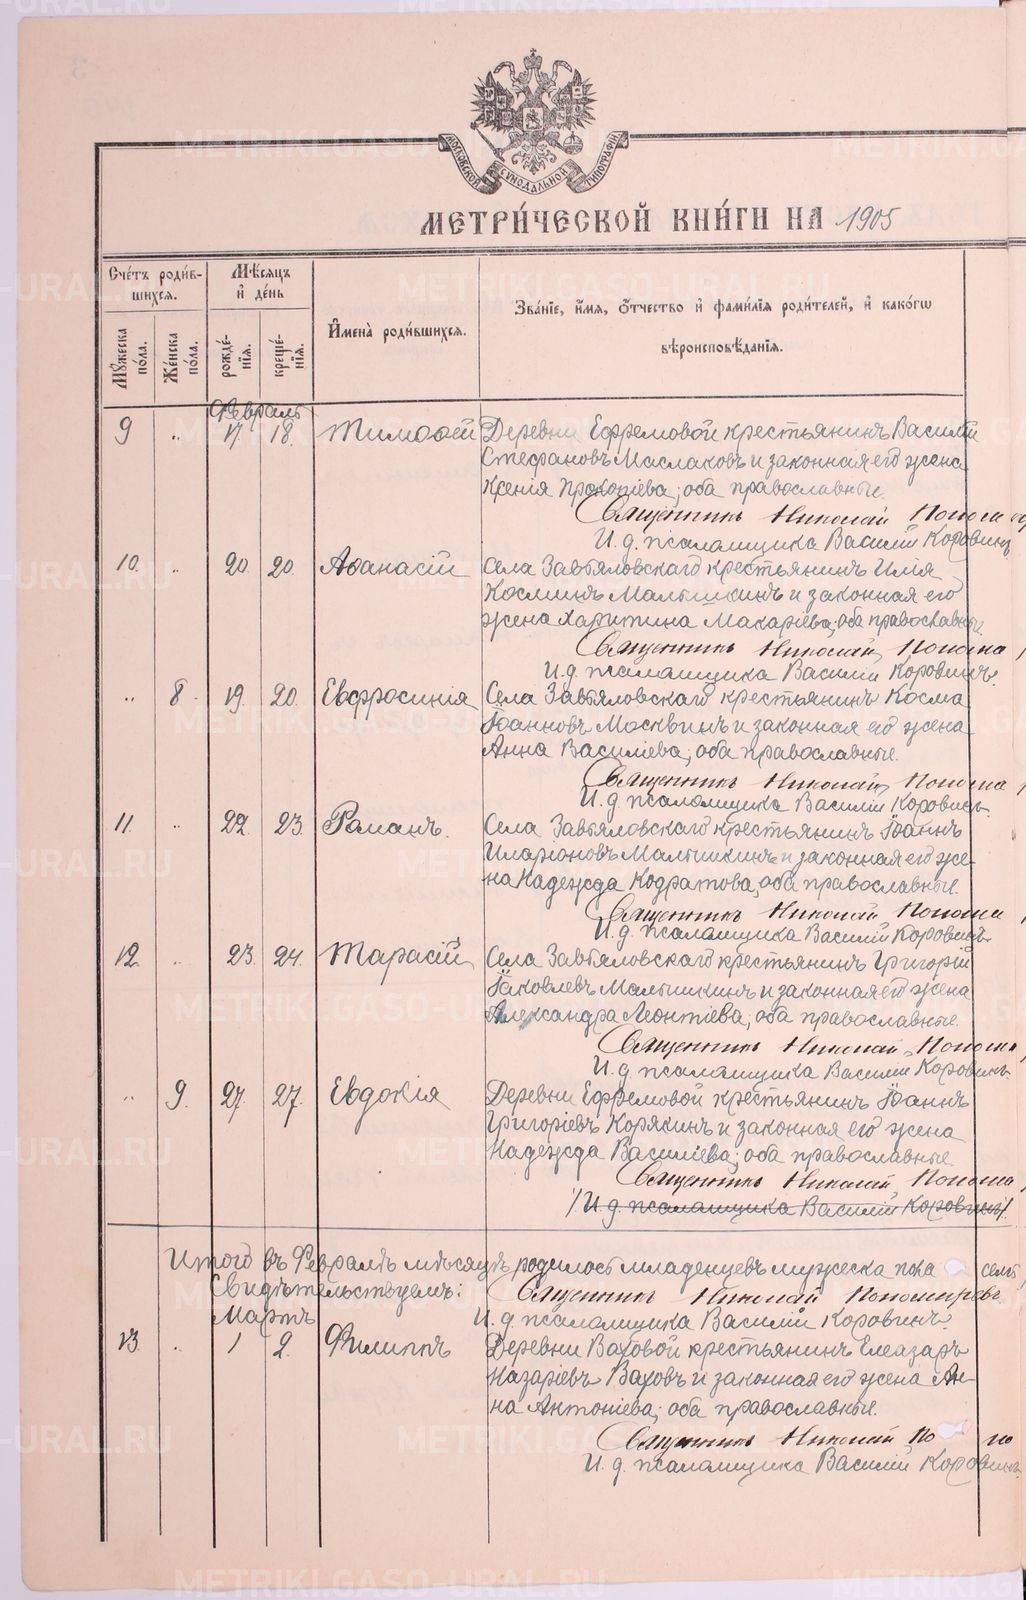 МОСКОВСКОЙ СѴНОДАЛЬНОЙ ТИПОГРАФІИ
МЕТРИ́ЧЕСКОЙ КНИ́ГИ НА 1905
Счéтъ роди́в-
шихся.
Мѣ́сяцъ
и҆ дéнь
И҆менà роди́вшихся.
Звáнїе, и҆́мя, ѻ҆́тчество и҆ фами́лїя роди́телей, и҆ какóгѡ
вѣроисповѣ́данїя.
Мꙋ́жеска пóла.
Жéнска пóла.
рождé-
нїя.
крещé-
нїя.
Февраль
9 „ 17 18. Тимоѳей Деревни Ефремовой крестьянинъ Василій
Стефановъ Маслаковъ и законная его жена
Ксенія Прокопіева; оба православные.
Священникъ Николай
И. д. псаломщика Василій Коровинъ
10. „ 20. 20. Аѳанасій Села Завьяловскаго крестьянинъ Илія
Косминъ Малышкинъ и законная его
жена Харитина Макаріева; оба православные.
Священникъ Николай
И. д. псаломщика Василій Коровинъ.
„ 8. 19. 20. Евфросинія Села Завьяловскаго крестьянинъ Косма
Іоанновъ Москвинъ и законная его жена
Анна Василіева; оба православные.
Священникъ Николай
И. д. псаломщика Василій Коровинъ.
11. „ 22. 23. Романъ. Села Завьяловскаго крестьянинъ Іоаннъ
Иларіоновъ Малышкинъ и законная его же-
на Надежда Кодратова, оба православные.
Священникъ Николай
И. д. псаломщика Василій Коровинъ.
12. „ 23. 24. Тарасій Села Завьяловскаго крестьянинъ Григорій
Іаковлевъ Малышкинъ и законная его жена
Александра Леонтіева; оба православные.
Священникъ Николай
И. д. псаломщика Василій Коровинъ.
„ 9. 27. 27. Евдокія Деревни Ефремовой крестьянинъ Іоаннъ
Григоріевъ Корякинъ и законная его жена
Надежда Василіева; оба православные.
Священникъ Николай
И. д. псаломщика Василій Коровинъ
Итого въ Февралѣ мѣсяцѣ родилось младенцевъ мужеска пола семь,
Свидѣтельствуемъ: Священникъ Николай Пономаревъ
Мартъ И. д. псаломщика Василій Коровинъ.
13. „ 1 2. Филиппъ Деревни Ваховой крестьянинъ Елеазаръ
Назаріевъ Ваховъ и законная его жена Ан-
на Антоніева; оба православные.
Священникъ Николай
И. д. псаломщика Василій Коровинъ.
METRIKI.GASO-URAL.RU